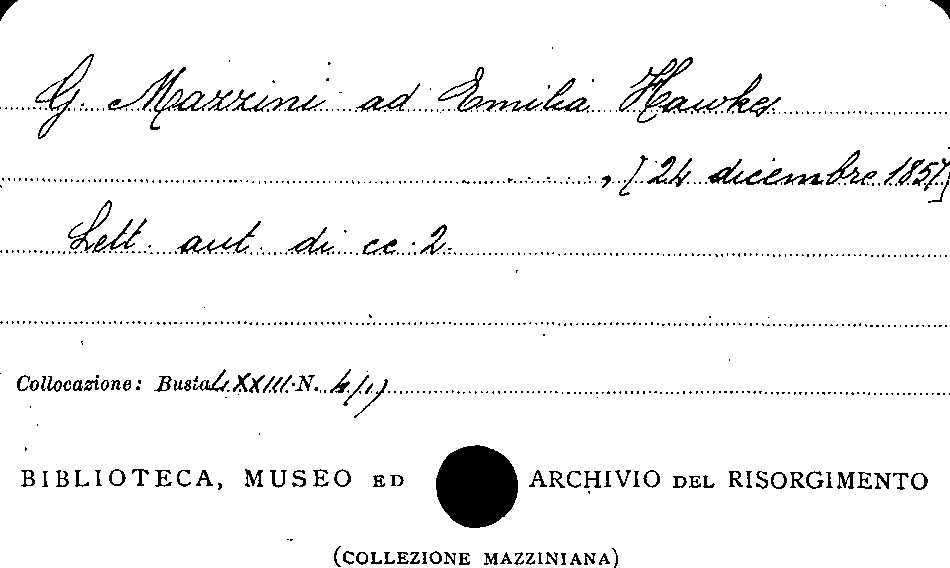 G. Mazzini ad Emilia Hawkes
, [24 dicembre 1857]
Lett. aut. di cc. 2.
Collocazione: Busta LXXIII N.
BIBLIOTECA, MUSEO ED ARCHIVIO DEL RISORGIMENTO
(COLLEZIONE MAZZINIANA)